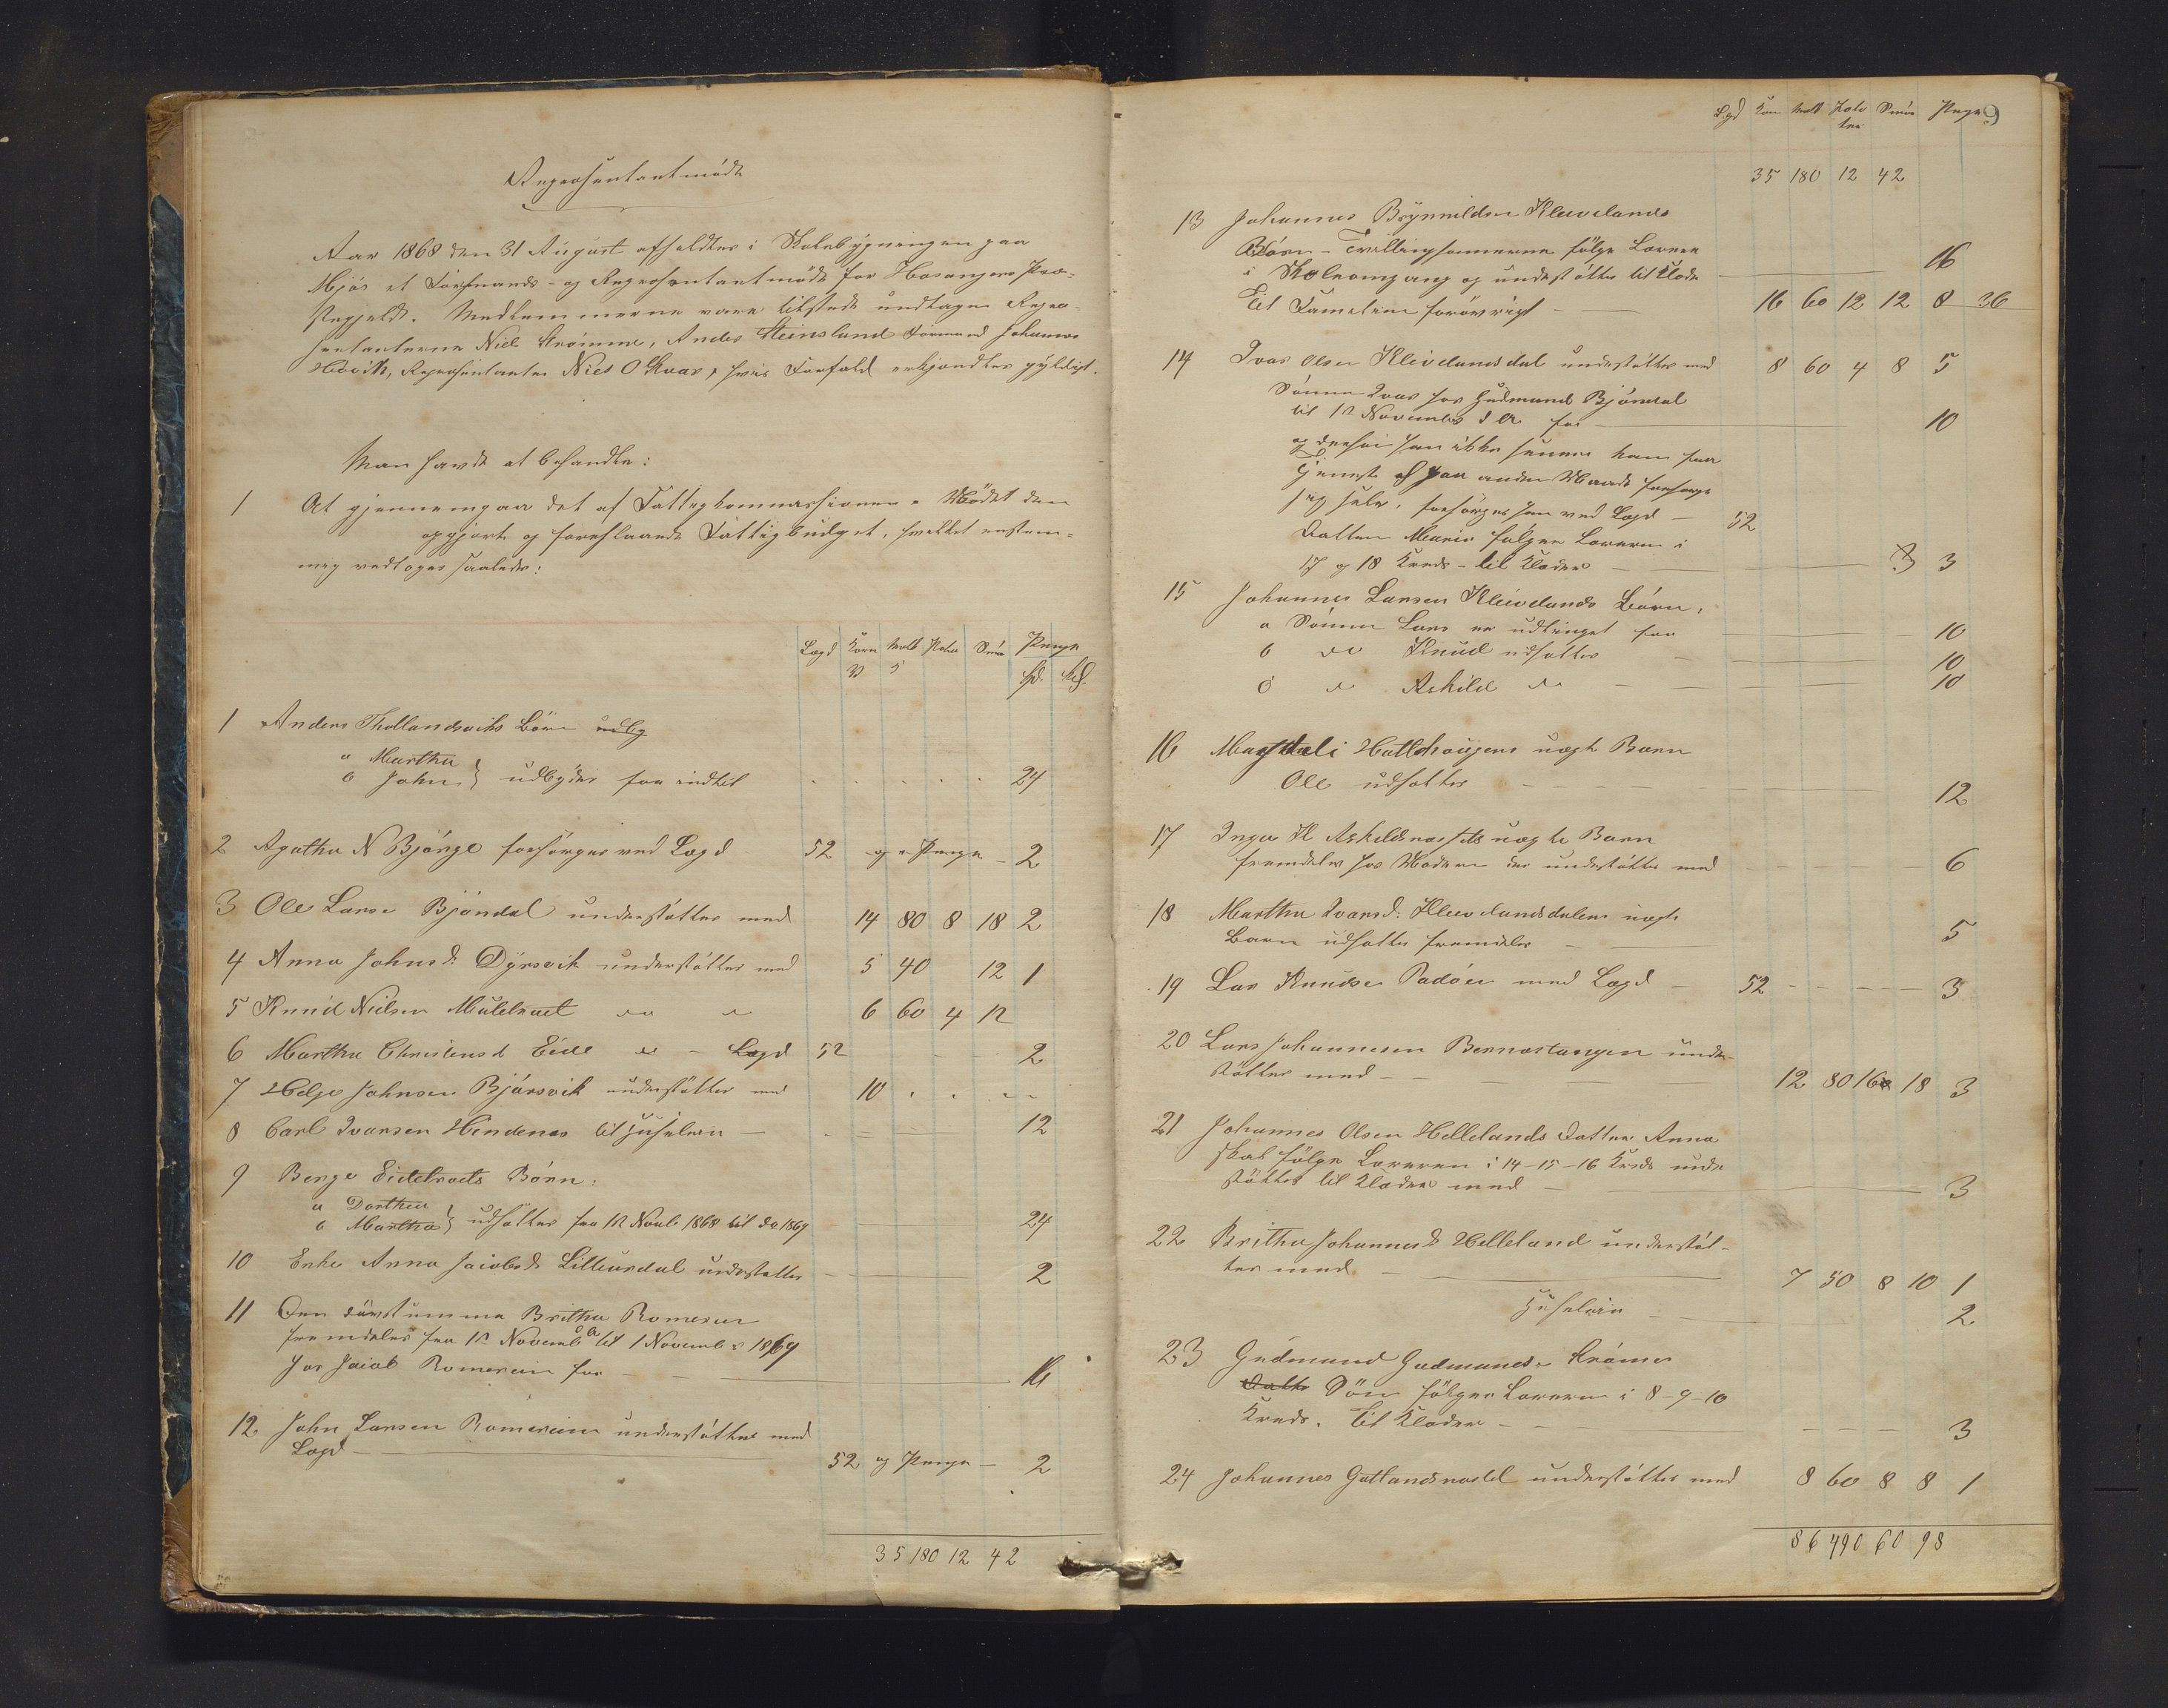 Repræsentantmöde
Aar 1868 den 31 August afholdtes i Skolebygningen paa
Mjös et Formands- og Repræsentantmöde for Hosangers Præ-
stegjeld. Medlemmerne vare tilstede undtagen Repræ-
sentanterne Niels Strömme, Anders Steinsland Formand Johannes
Repræsentanten Niels O Kvas, hvis Forfald erkjendtes gyldigt.
Man havde at behandle:
1 At gjennemgaa det af Fattigkommissionen i Mödet den
opgjort og foreslaaede Fattigbudget, hvilket enstem-
mig vedtoges saaledes:
Lægd Korn Malt Poteter Smör Penge
V S Spd. Sk.
1 Anders Thollandsviks Börn udby
a Martha
b John } udbydes fra indtil 24
2 Agatha N Bjørge forsörges ved Lægd 52 og i Penge - 2
3 Ole Larsen Bjöndal understöttes med 14 80 8 18 2
4 Anna Johnsd: Dyrsvik understöttes med 5 40 12 1
5 Knud Nielsen Muletræet do do 6 60 4 12
6 Martha Christensd Eide do - Lægd 52 2
7 Helge Johnsen Bjørsvik understöttes med 10
8 Carl Ivarsen Hindenes til Huseleie 12
9 Berge Eidetræets Börn:
a Dorthea
b Martha } udsættes fra 12 Novb 1868 til do 1869 24
10 Enke Anna Jacobsd. Litleurdal understöttes 2
11 Den Dövstumme Britha Romerein
fremdeles fra 12 Novemb d A til 1 Novemb 1869
hos Jacob Romerein for 16
12 John Larsen Romerein understöttes med
Lægd 52 og Penge - 2
35 180 12 42
9
Lgd Korn Malt Pote Smör Penge
ter
35 180 12 42
13 Johannes Brynnildsen Klevelands
Börn - Tvillingsönnerne fölge Læreren
i Skoleomgang og understöttes til Klæder 16
Til Familien forövrigt 16 60 12 12 8 36
14 Ivar Olsen Klevelandsdal understöttes med 8 60 4 8 5
Sönnen Ivar hos Gudmund Bjöndal
til 12 November d A for 10
og dersom han ikke senere kan faa
Tjeneste el paa anden Maade forsörge
sig selv, forsörges han ved Lægd - 52
Datteren Maria fölger Læreren i
17 og 18 Kreds - til Klæder 3
15 Johannes Larsen Klevelands Börn,
a Sönnen Lars er udtinget for 10
b do Knud udsættes 10
c do Askild do 10
16 Magdali Hatlehaugens uægte Barn
Ole udsættes 12
17 Inga H Askildsnæssets uægte Barn
fremdeles hos Moderen der understöttes med 6
18 Martha Ivarsd: Klevelandsdalens uægte
Barn udsættes fremdeles 5
19 Lars Knudsen Padöen med Lægd - 52 3
20 Lars Johannesen Bernestangen under-
stöttes med 12 80 16 18 3
21 Johannes Olsen Hellelands Datter Anna
skal fölge Læreren i 14-15-16 Kreds under
stöttes til Klæder med 3
22 Britha Johannesd Helleland understöt-
tes med 7 50 8 10 1
Huseleie 2
23 Gudmund Gudmunds. Krämer
Datter Sön fölger Læreren i 8-9-10
Kreds. Til Klæder 3
24 Johannes Gutlandsnæstet understöttes med 8 60 8 8 1
86 490 60 98